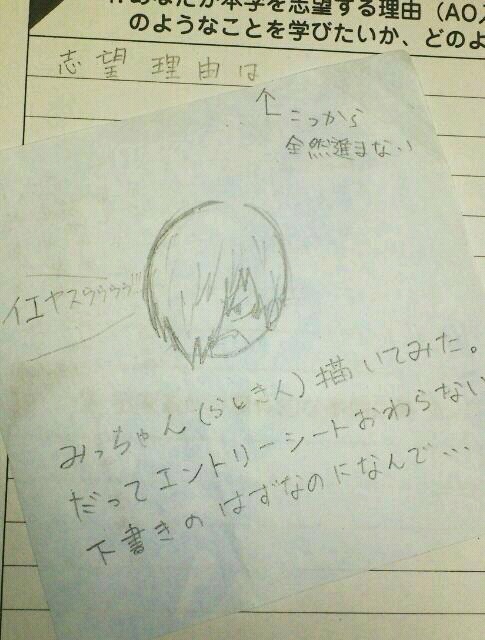 あなたが本学を志望する理由（AO入
のようなことを学びたいか、どのよ
志望理由は
↑こっから
全然進まない
イエヤスゥゥゥゥ!!!
みっちゃん（らしき人）描いてみた。
だってエントリーシートおわらない
下書きのはずなのになんで…